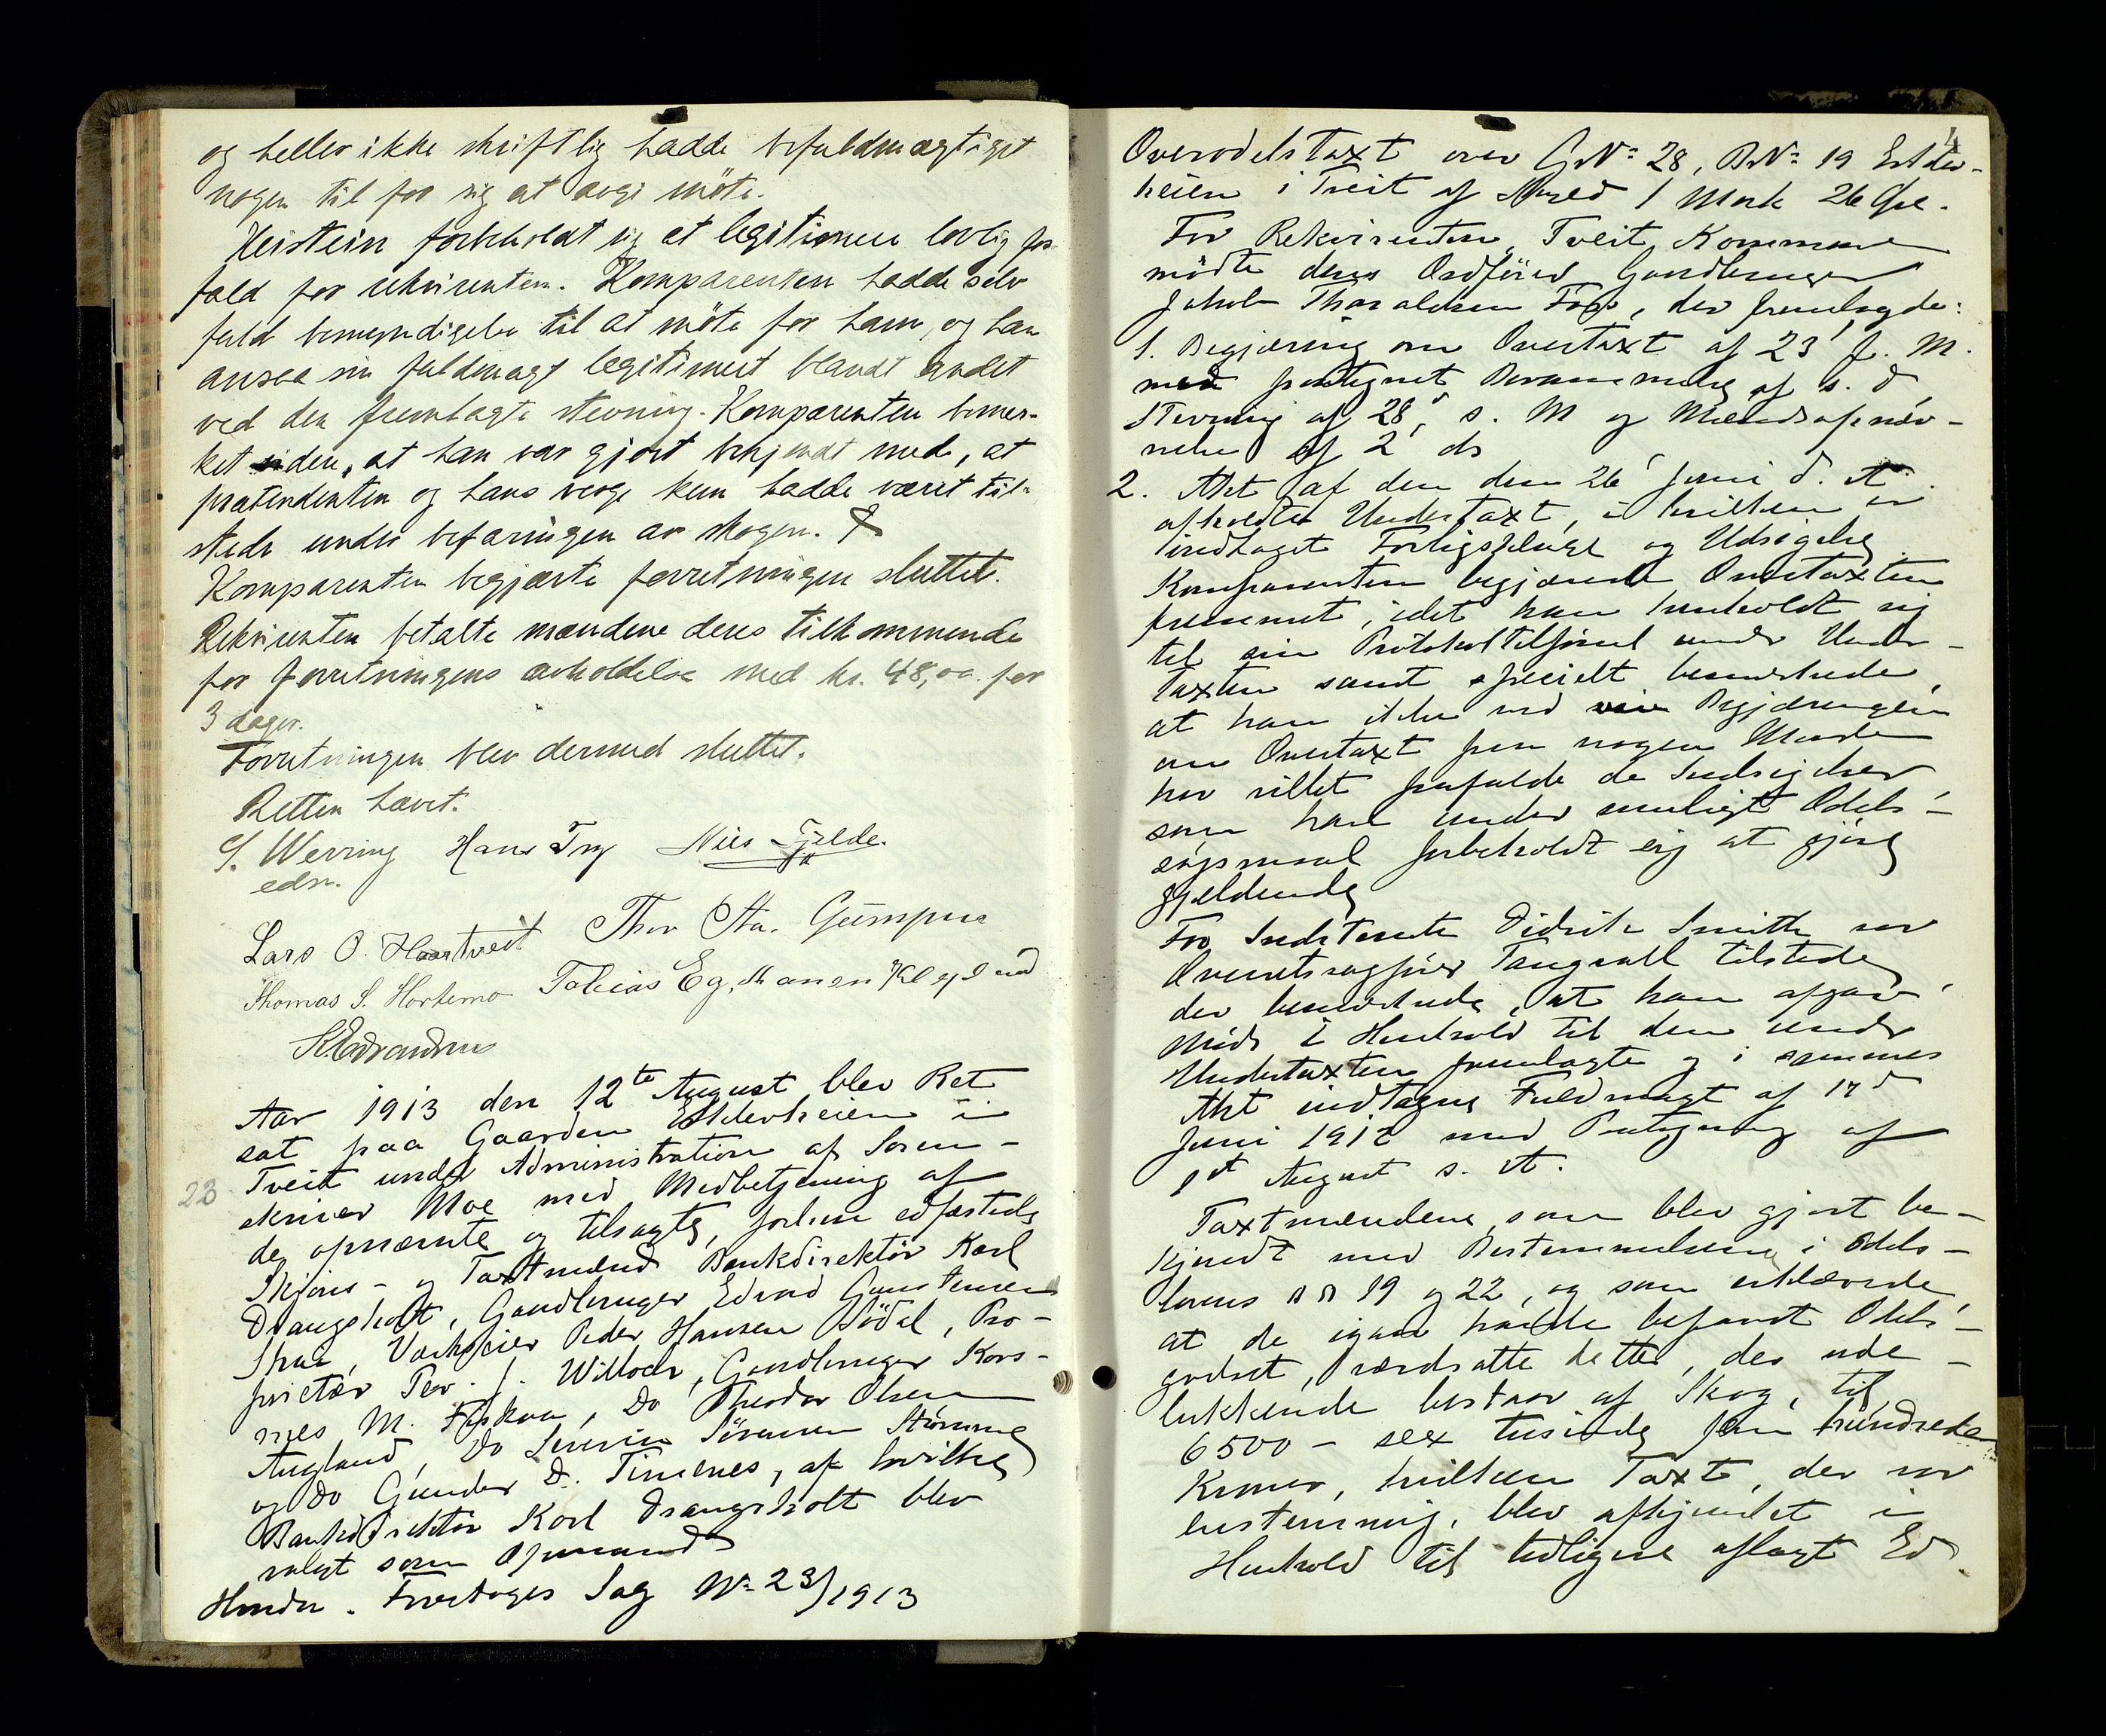 og heller ikke skriftlig hadde befuldmægtiget
nogen til for sig at avgi møte.
Heistein forbeholdt sig at legitimere lovlig for-
fald for rekvirenten. Komparenten hadde selv
fuld bemyndigelse til at møte for ham, og han
ansaa sin fuldmagt legitimert blandt andet
ved den fremlagte stevning. Komparenten bemer-
ket siden, at han var gjort bekjendt med, at
prætendenten og hans verge kun hadde været til-
stede under befaringen av skogen.
Komparenten begjærte forretningen sluttet.
Rekvirenten betalte mændene deres tilkommende
for forretningens avholdelse med kr. 48,00 for
3 dager.
Forretningen blev dermed sluttet.
Retten hævet.
S. Werring Hans Try Nils Fjelde.
edsv.
Lars O. Haartveit Thor Sta. Gumpen
Thomas S. Hortemo Tobias Eg. Kleveland
Aar 1913 den 12te August blev Ret
sat paa Gaarden Eklevheien i
Tveit under Administration af Soren-
23
skriver Moe med Medbetjening af
de opnævnte og tilsagte, forhen edfæstede
Skjøns- og Taxtmænd Bankdirektør Karl
Drangsholt, Gaardbruger Edvard Gunstensen
Strai, Værkseier Peder Hansen Bødal, Pro-
prietær Ter. J. Willoch, Gaardbruger Kors-
nes M. Fiskaa, Do Theodor Olsen
Augland, Do Severin Sørensen Strømme
og Do Gunder D. Timenes, af hvilke
Bankdirektør Karl Drangsholt blev
valgt som Opmand
Hvorda. Foretoges Sag No 23/1913
4
Overodelstaxt over G No 28, B No 19 Eklev-
heien i Tveit af Skyld 1 Mark 26 Øre.
For Rekvirenten, Tveit Kommune
mødte deres Ordfører Gaardbruger
Jakob Thoraldsen Foss, der fremlagde:
1. Begjæring om Overtaxt af 23' f. M.
med paategnet Berammelse af s. d,
Stevning af 28' s. M og Mændsopnæv-
nelse af 2' ds
2. Akt af den den 26' Juni d. A.
afholdte Undertaxt, i hvilken er
indtaget Forligsklage og Udsigelse
Komparenten begjærede Overtaxten
fremmet, idet han henholdt sig
til sin Protokoltilførsel under Under-
taxten samt specielt bemærkede,
at han ikke ved Begjæringen
om Overtaxt paa nogen Maade
har villet frafalde de Indsigelser
som han under muligt Odels-
søgsmaal forbeholdt sig at gjøre
gjældende
For Indstevnte Didrik Smith var
Overretssagfører Tangvall tilstede
der bemærkede, at han afgav
Møde i Henhold til den under
Undertaxten fremlagte og i sammes
Akt indtagne Fuldmagt af 17d
Juni 1912 med Paategning af
1st August s. A.
Taxtmændene, som blev gjort be-
kjendt med Bestemmelserne i Odels-
lovens §§ 19 og 22, og som erklærede,
at de igaar havde befaret Odels-
godset, værdsatte dette, der ude-
lukkende bestaar af Skog, til
6500 - sex tusinde fem hundrede
Kroner, hvilken Taxt, der var
enstemmig, blev afhjemlet i
Henhold til tidligere aflagt Ed.